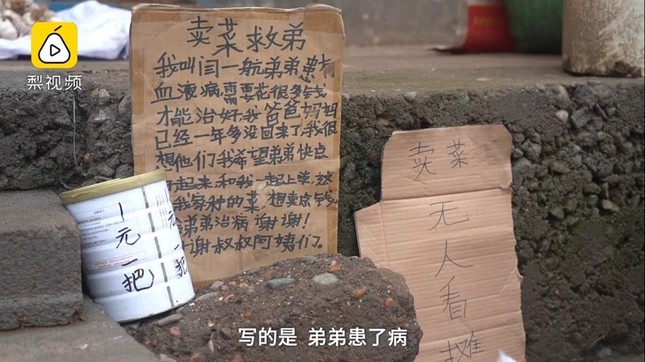 梨视频
卖菜救弟
我叫闫一航弟弟患有
血液病需要花很多钱
才能治好我爸爸妈妈
已经一年多没回来了,我很
想他们我希望弟弟快点
起来和我一起上学,这
是我家种的菜想卖点钱
弟弟治病谢谢!
谢叔叔阿姨们
1元一把
元一把
卖菜
无人看摊
写的是 弟弟患了病